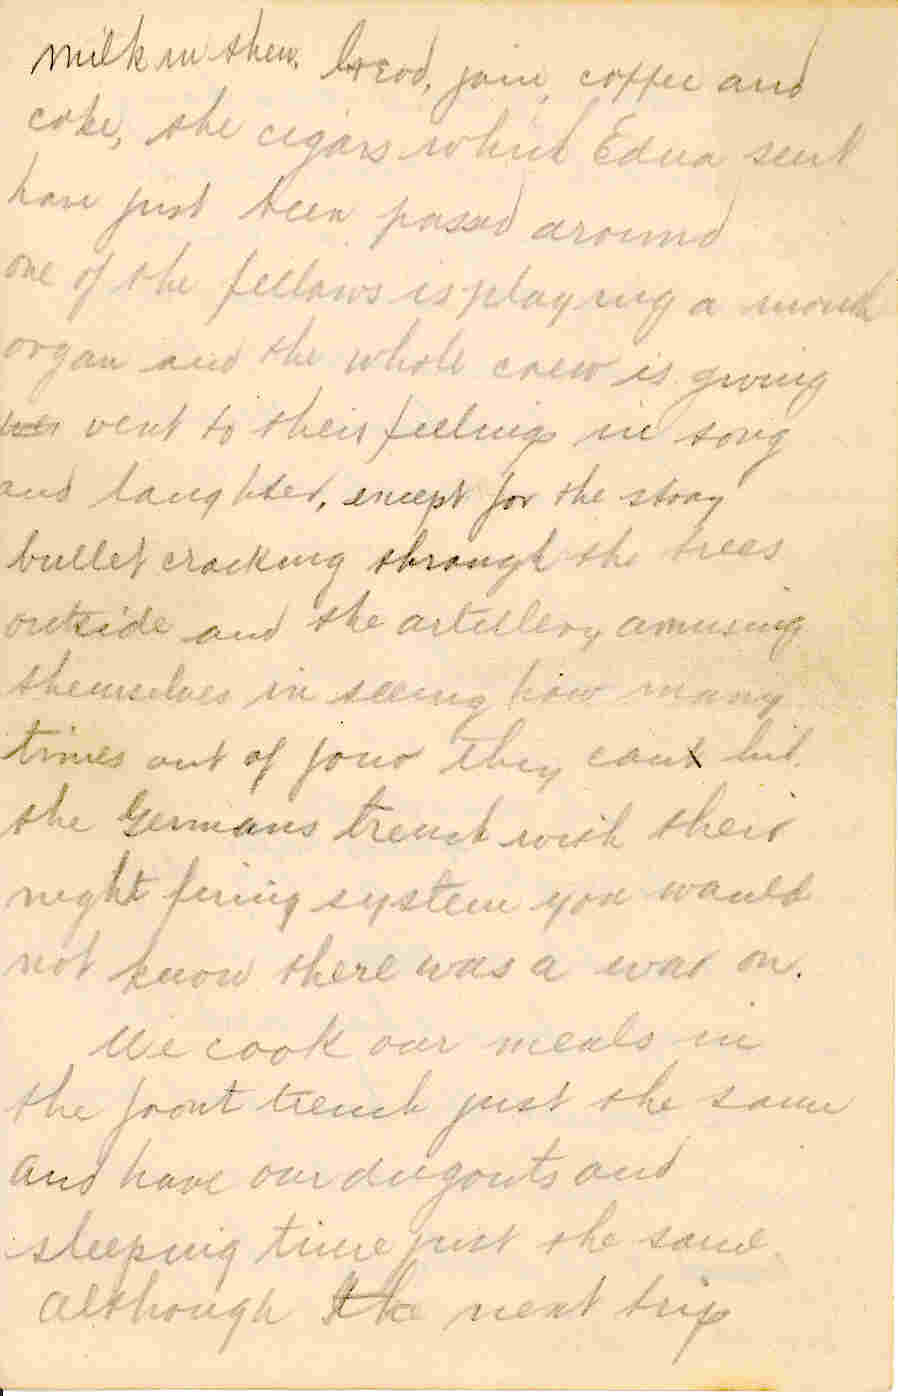 milk in them. bread, jam, coffee and
cake, the cigars which Edna sent
have just been passed around
one of the fellows is playing a mouth
organ and the whole crew is giving
vent to their feelings in song
and laughter, except for the stray
bullet cracking through the trees
outside and the artillery amusing
themselves in seeing how many
times out of four they can hit
the Germans trench with their
night firing system you would
not know there was a war on.
We cook our meals in
the front trench just the same
and have our dugouts and
sleeping time just the same
although the next trip